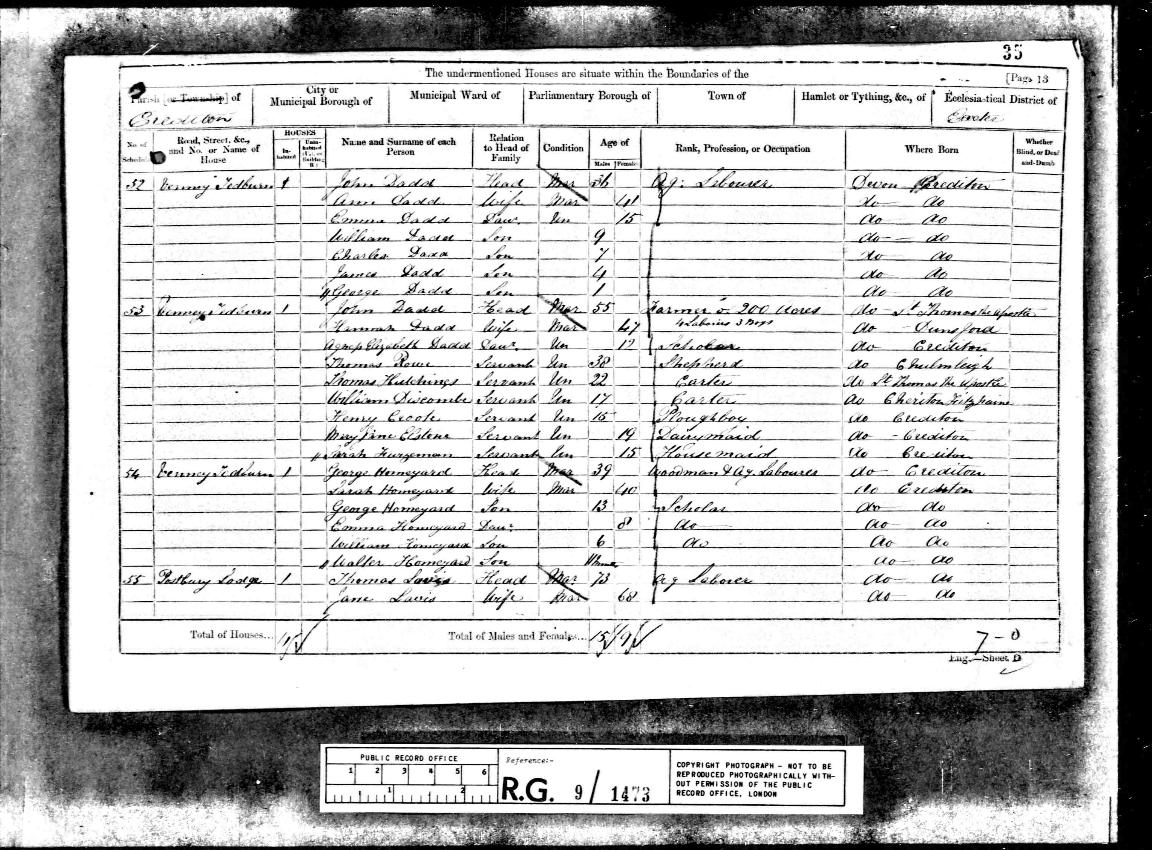 35
The undermentioned Houses are situate within the Boundaries of the
[Page 13
Parish [or Township] of
City or Municipal Borough of
Municipal Ward of
Parliamentary Borough of
Town of
Hamlet or Tything, &c., of
Ecclesiastical District of
Crediton
No. of Schedule
Road, Street, &c., and No. or Name of House
HOUSES
Inhabited
Uninhabited
Name and Surname of each Person
Relation to Head of Family
Condition
Age of
Males
Females
Rank, Profession, or Occupation
Where Born
Whether Blind, or Deaf-and-Dumb
52 Venny Tedburn 1 John Dadd Head Mar 56 Ag: Labourer Devon Crediton
Ann Dadd Wife Mar 41 do do
Emma Dadd Daur. Un 15 do do
William Dadd Son 9 do do
Charles Dadd Son 7 do do
James Dadd Son 4 do do
George Dadd Son 1 do do
53 Venney Tedburn 1 John Dadd Head Mar 55 Farmer 200 Acres do St Thomas the Apostle
Hannah Dadd Wife Mar 47 4 Labories 3 Boys do Dunsford
Agness Elizabeth Dadd Daur. Un 12 Scholar do Crediton
Thomas Rowe Servant Un 38 Shepherd do Chulmleigh
Thomas Hutchings Servant Un 22 Carter do St Thomas the Apostle
William Discombe Servant Un 17 Carter do Cheriton Fitzpaine
Henry Servant Un 15 Ploughboy do Crediton
Mary Jane Elstone Servant Un 19 Dairymaid do Crediton
Sarah Servant Un 15 Housemaid do Crediton
54 Venney Tedburn 1 George Homeyard Head Mar 39 Woodman & Ag. Labourer do Crediton
Sarah Homeyard Wife Mar 40 do Crediton
George Homeyard Son 13 Scholar do do
Emma Homeyard Daur. 8 do do do
William Homeyard Son 6 do do do
Walter Homeyard Son do do
55 Postbury Lodge 1 Thomas Lavis Head Mar 73 Ag Laborer do do
Jane Lavis Wife Mar 68 do do
Total of Houses... 4
Total of Males and Females... 15 9
7 - 0
Eng.—Sheet D
PUBLIC RECORD OFFICE
1 2 3 4 5 6
1 2
Reference:-
R.G. 9 / 1473
COPYRIGHT PHOTOGRAPH - NOT TO BE
REPRODUCED PHOTOGRAPHICALLY WITH-
OUT PERMISSION OF THE PUBLIC
RECORD OFFICE, LONDON